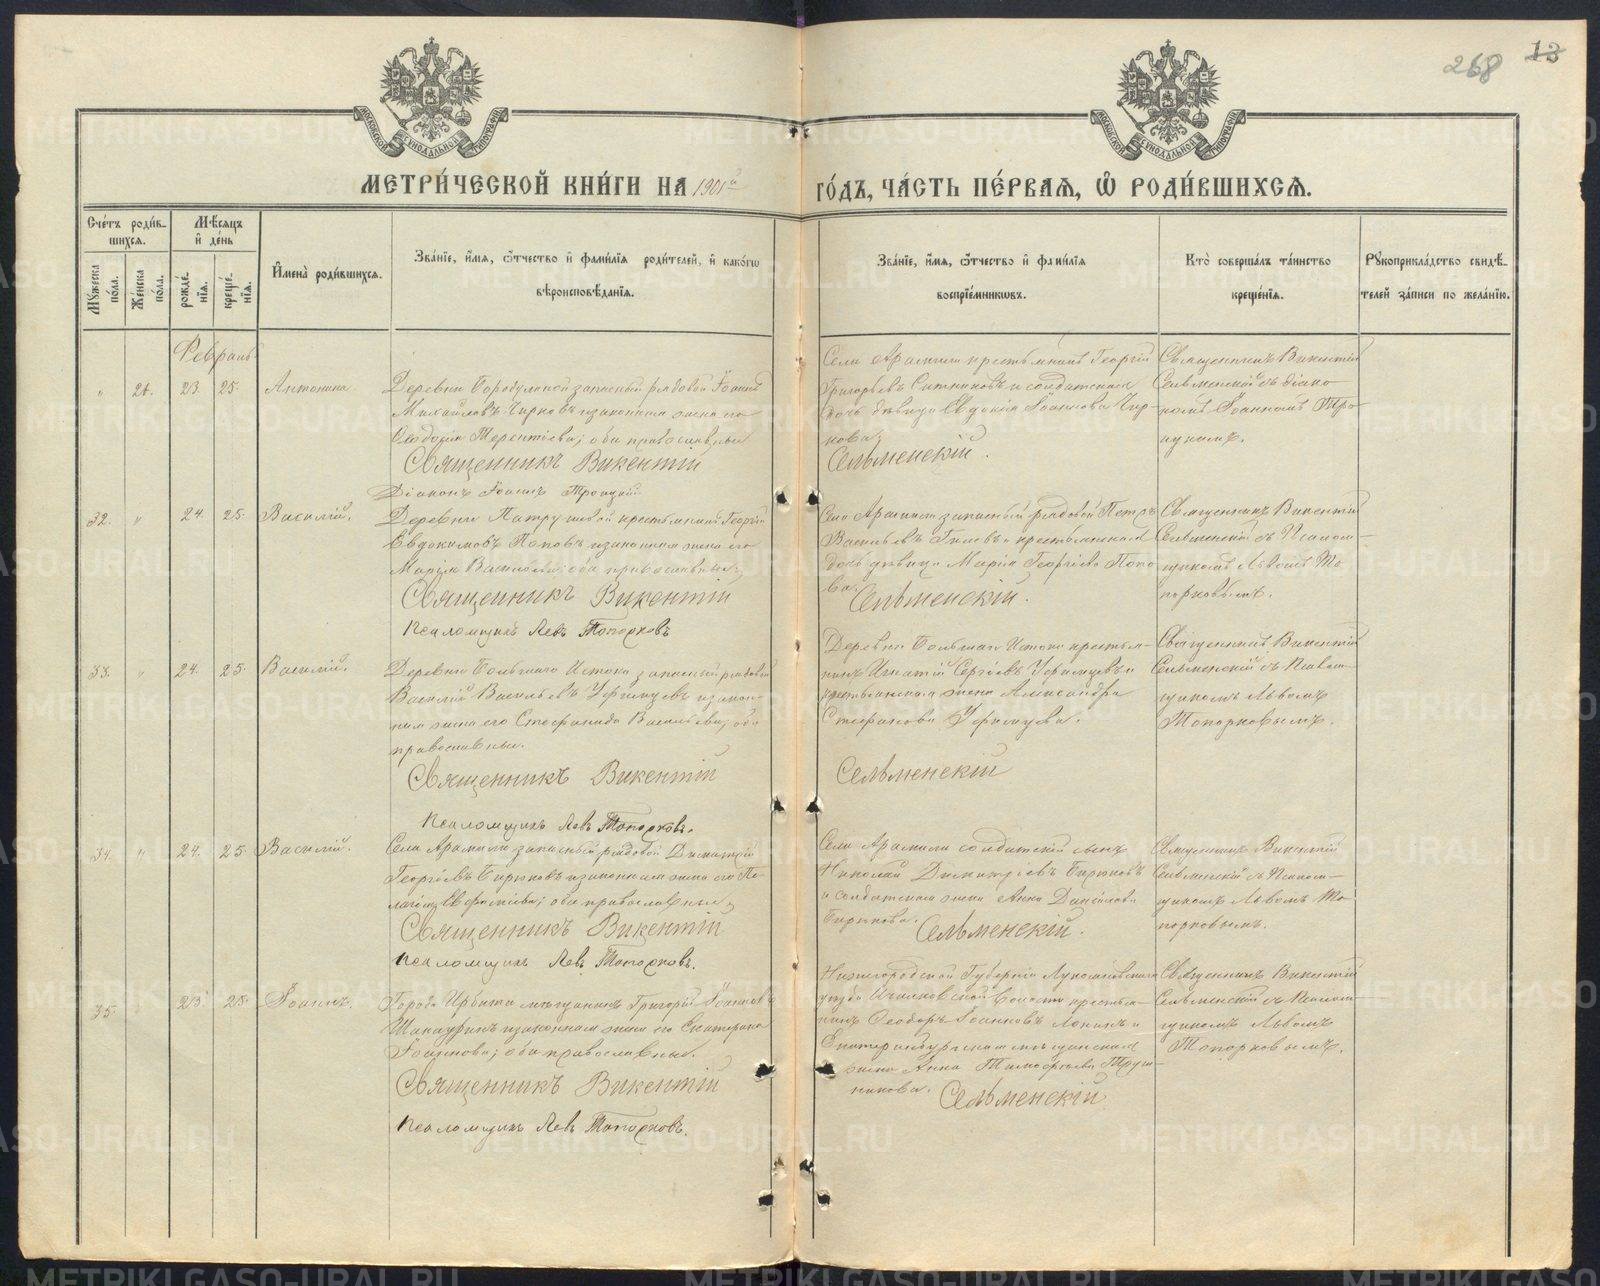 268 13
МЕТРИ́ЧЕСКОЙ КНИ́ГИ НА 1901й ГО́ДЪ, ЧА́СТЬ ПЕ́РВАЯ, Ѽ РОДИ́ВШИХСЯ.
Сче́тъ роди́в-
шихся.
Мѣ́сяцъ
и де́нь
Мꙋ́жеска по́ла.
Же́нска по́ла.
рожде́нїя.
креще́нїя.
Имена̀ роди́вшихся.
Зва́нїе, и́мя, ѻ́тчество и фами́лїя роди́телей, и како́гѡ
вѣроисповѣ́данїя.
Зва́нїе, и́мя, ѻ́тчество и фами́лїя
воспрїе́мникѡвъ.
Кто̀ соверша́лъ та́инство
креще́нїя.
Рꙋкоприкла́дство свидѣ́-
телей за́писи по жела́нїю.
Февраль
" 21. 23. 25. Антонина
Деревни Бородулиной запасный рядовой Іоаннъ
Михайловъ Чирковъ и законная жена его
Ѳеодосія Терентіева; оба православные
Священникъ Викентій
Діаконъ Іоаннъ Троицкій
Села Арамили крестьянинъ Георгій
Григорьевъ Ситниковъ и солдатская
дочь дѣвица Евдокія Іоаннова Чир-
кова.
Сельменскій.
Священникъ Викентій
Сельменскій съ діако-
номъ Іоанномъ Тро-
ицкимъ.
32. " 24. 25. Василій.
Деревни Патрушевой крестьянинъ Георгій
Евдокимовъ Поповъ и законная жена его
Марія Васильева; оба православные,
Священникъ Викентій
Псаломщикъ Левъ Топорковъ
Села Арамили запасный рядовой Петръ
Васильевъ и крестьянская
дочь дѣвица Марія Георгіева Попо-
ва.
Сельменскій.
Священникъ Викентій
Сельменскій съ Псалом-
щикомъ Львомъ То-
порковымъ.
33. " 24. 25. Василій.
Деревни Большаго Истока запасный рядовой
Василій Васильевъ Уфимцевъ и закон-
ная жена его Стефанида Васильева, оба
православные.
Священникъ Викентій
Псаломщикъ Левъ Топорковъ.
Деревни Большаго Истока крестья-
нинъ Игнатій Сергіевъ Уфимцевъ и
крестьянская жена Александра
Стефанова Уфимцева.
Сельменскій
Священникъ Викентій
Сельменскій съ Псалом-
щикомъ Львомъ
Топорковымъ.
34. " 24. 25. Василій.
Села Арамили запасный рядовой Димитрій
Георгіевъ Бирюковъ и законная жена его Пе-
лагія; оба православные,
Священникъ Викентій
Псаломщикъ Левъ Топорковъ.
Села Арамили солдатскій сынъ
Николай Димитріевъ Бирюковъ
и солдатская жена Анна Даніилова
Бирюкова.
Сельменскій.
Священникъ Викентій
Сельменскій съ Псалом-
щикомъ Львомъ То-
порковымъ.
35. " 23. 25. Іоаннъ.
Города Ирбита мѣщанинъ Григорій Іоанновъ
и законная жена его Екатерина
Іоаннова; оба православные.
Священникъ Викентій
Псаломщикъ Левъ Топорковъ.
Нижегородской Губерніи Лукояновскаго
уѣзда волости крестья-
нинъ Ѳеодоръ Іоанновъ и
Екатеринбургская мѣщанская
жена Анна Тимофеева
Сельменскій
Священникъ Викентій
Сельменскій съ Псалом-
щикомъ Львомъ
Топорковымъ.
METRIKI.GASO-URAL.RU